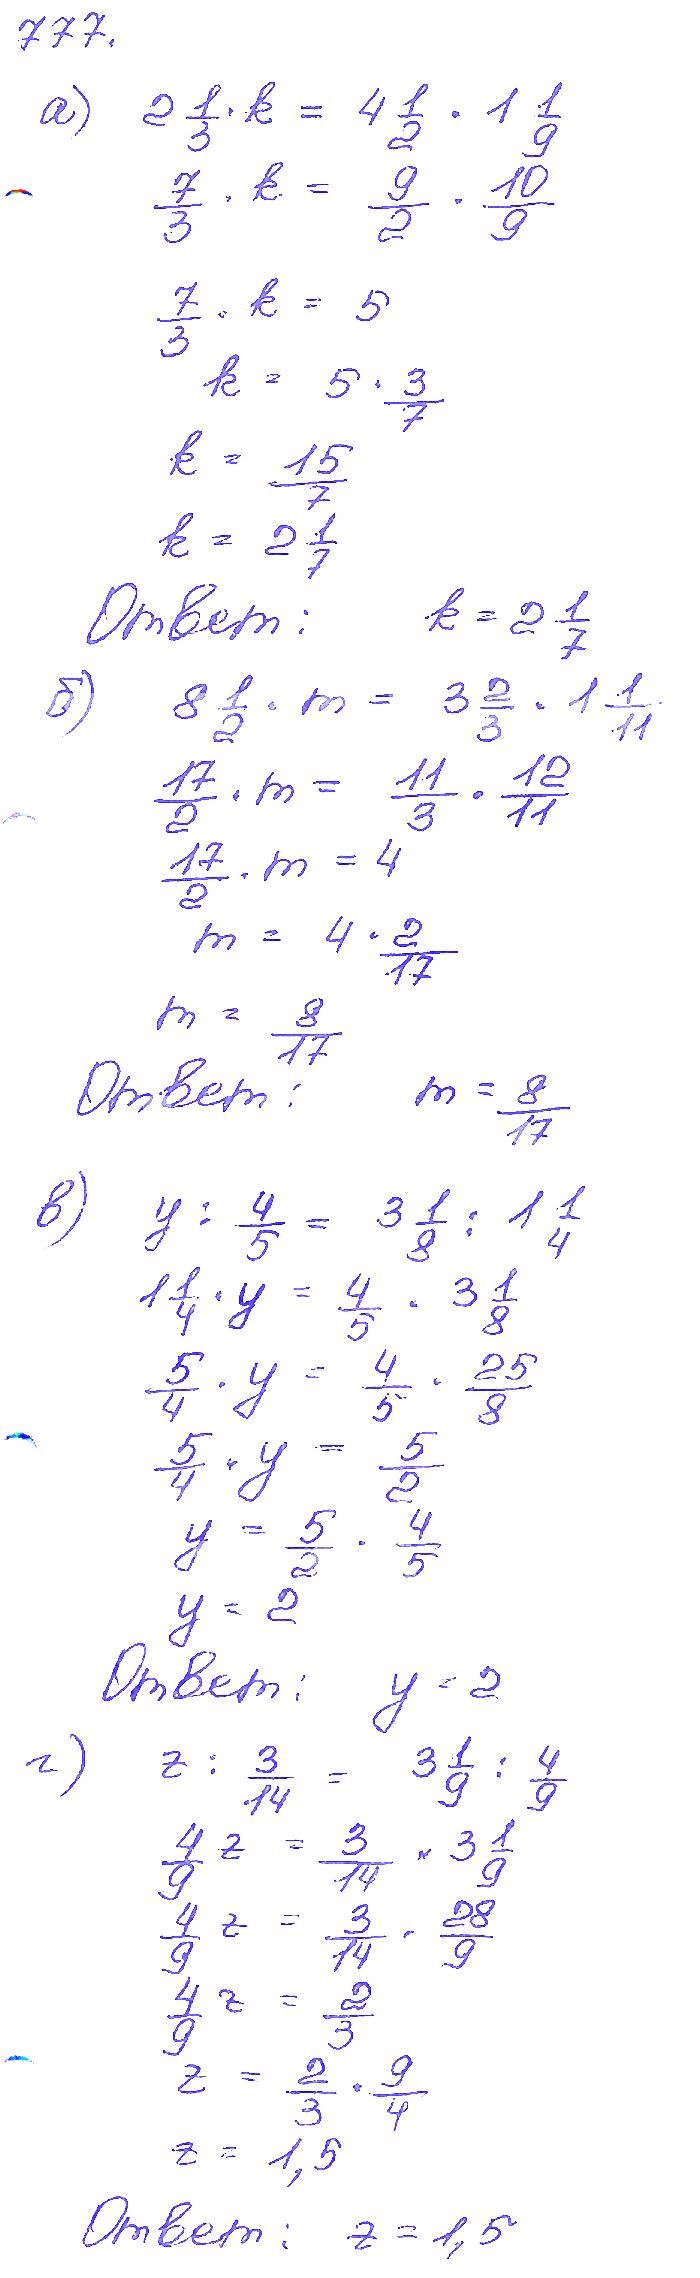 777.
а) 2 1/3 · k = 4 1/2 · 1 1/9
7/3 · k = 9/2 · 10/9
7/3 · k = 5
k = 5 · 3/7
k = 15/7
k = 2 1/7
Ответ: k = 2 1/7
б) 8 1/2 · m = 3 2/3 · 1 1/11
17/2 · m = 11/3 · 12/11
17/2 · m = 4
m = 4 · 2/17
m = 8/17
Ответ: m = 8/17
в) y : 4/5 = 3 1/8 : 1 1/4
1 1/4 · y = 4/5 · 3 1/8
5/4 · y = 4/5 · 25/8
5/4 · y = 5/2
y = 5/2 · 4/5
y = 2
Ответ: y = 2
г) z : 3/14 = 3 1/9 : 4/9
4/9 z = 3/14 · 3 1/9
4/9 z = 3/14 · 28/9
4/9 z = 2/3
z = 2/3 · 9/4
z = 1,5
Ответ: z = 1,5